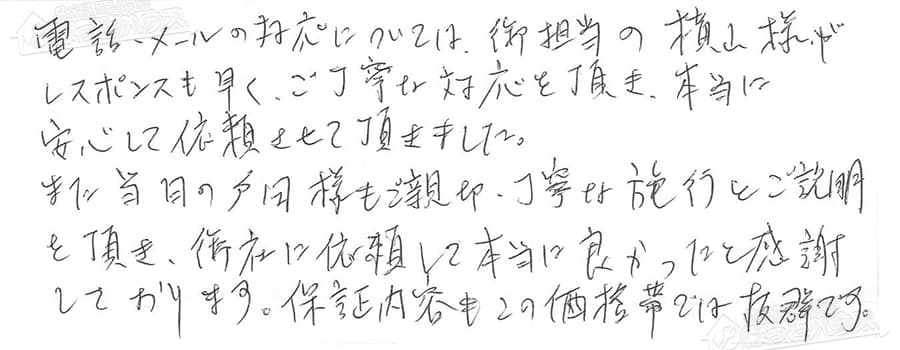 電話・メールの対応については、御担当の横山様が
レスポンスも早く、ご丁寧な対応を頂き、本当に
安心して依頼させて頂きました。
また当日の戸田様もご親切・丁寧な施行とご説明
を頂き、御社に依頼して本当に良かったと感謝
しております。保証内容もこの価格帯では抜群です。